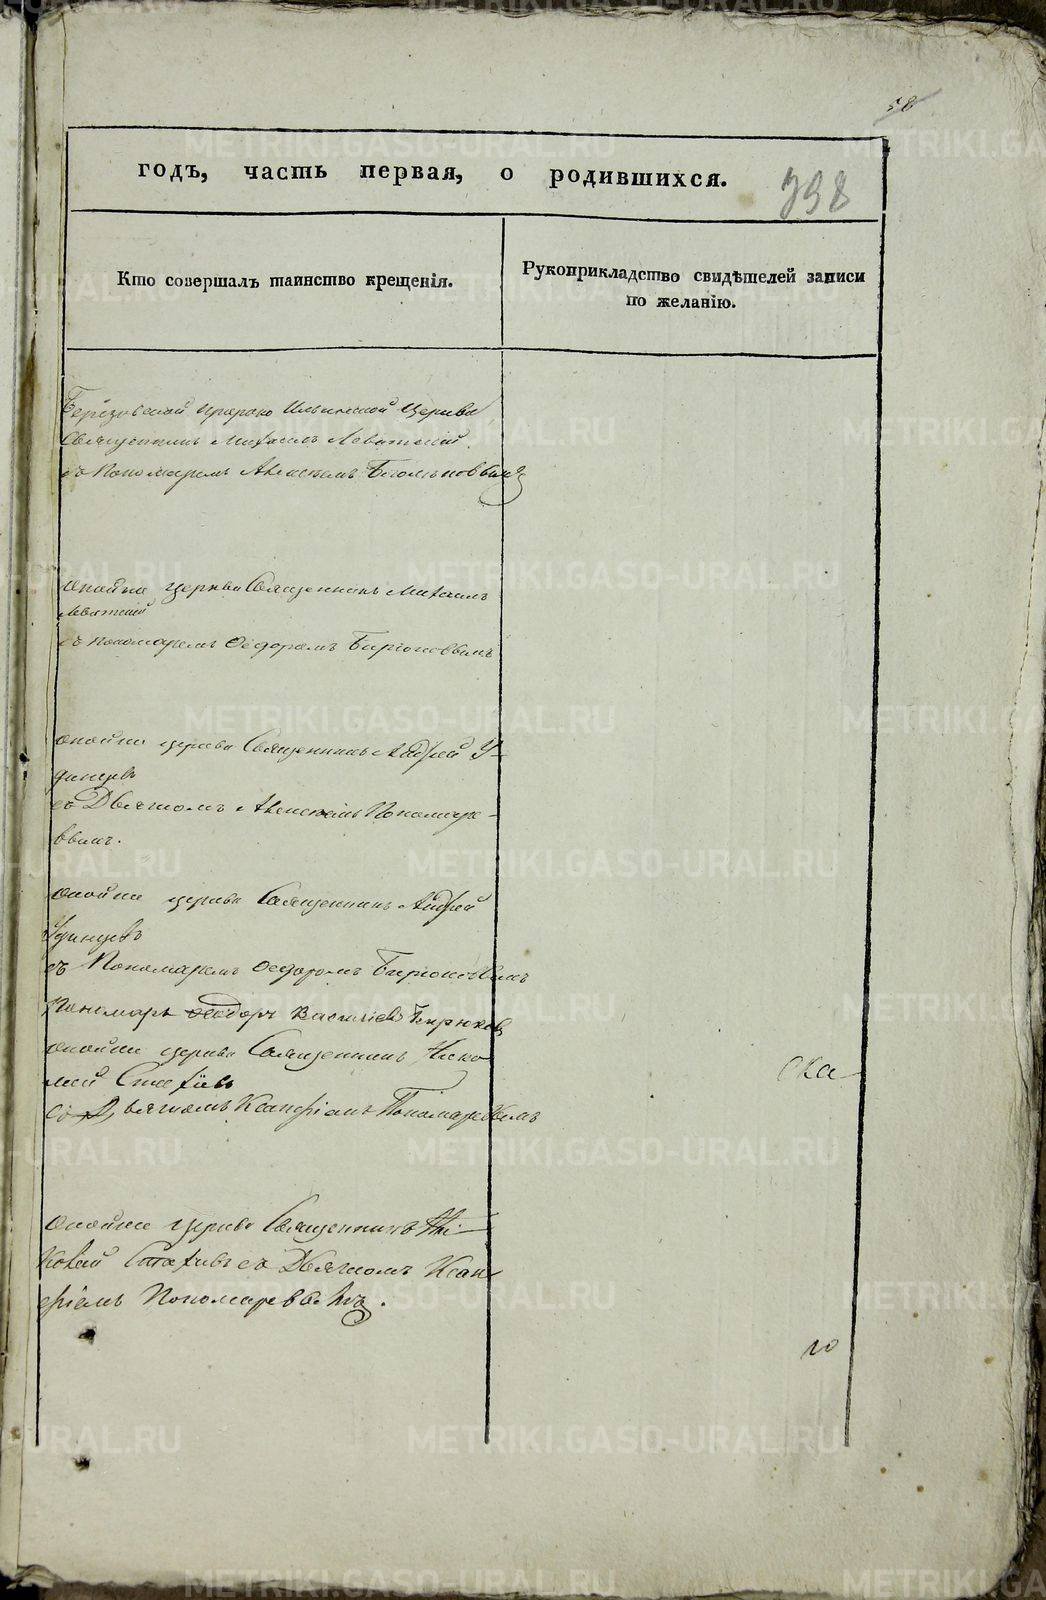 58
годъ, часть первая, о родившихся.
798
Кто совершалъ таинство крещенія.
Рукоприкладство свидѣтелей записи
по желанію.
Березовской Пророко Ильинской Церкви
Священникъ Михаилъ Левитскій
съ Пономаремъ
оной же церкви Священникъ Михаилъ
Левитскій
съ пономаремъ Ѳедоромъ Бирюковымъ
оной же церкви Священникъ Андрей У-
динцевъ
съ Дьячкомъ Алексѣемъ Пономаре-
вымъ.
оной же церкви Священникъ Андрей
Удинцевъ
съ Пономаремъ Ѳедоромъ Бирюковымъ
Пономарь Ѳеодоръ Василіевъ Бирюковъ
оной же церкви Священникъ Нико
лай
съ Дьячкомъ Пономаревымъ
ска
оной же церкви Священникъ Ни-
колай съ Дьячкомъ
Пономаревымъ.
METRIKI.GASO-URAL.RU